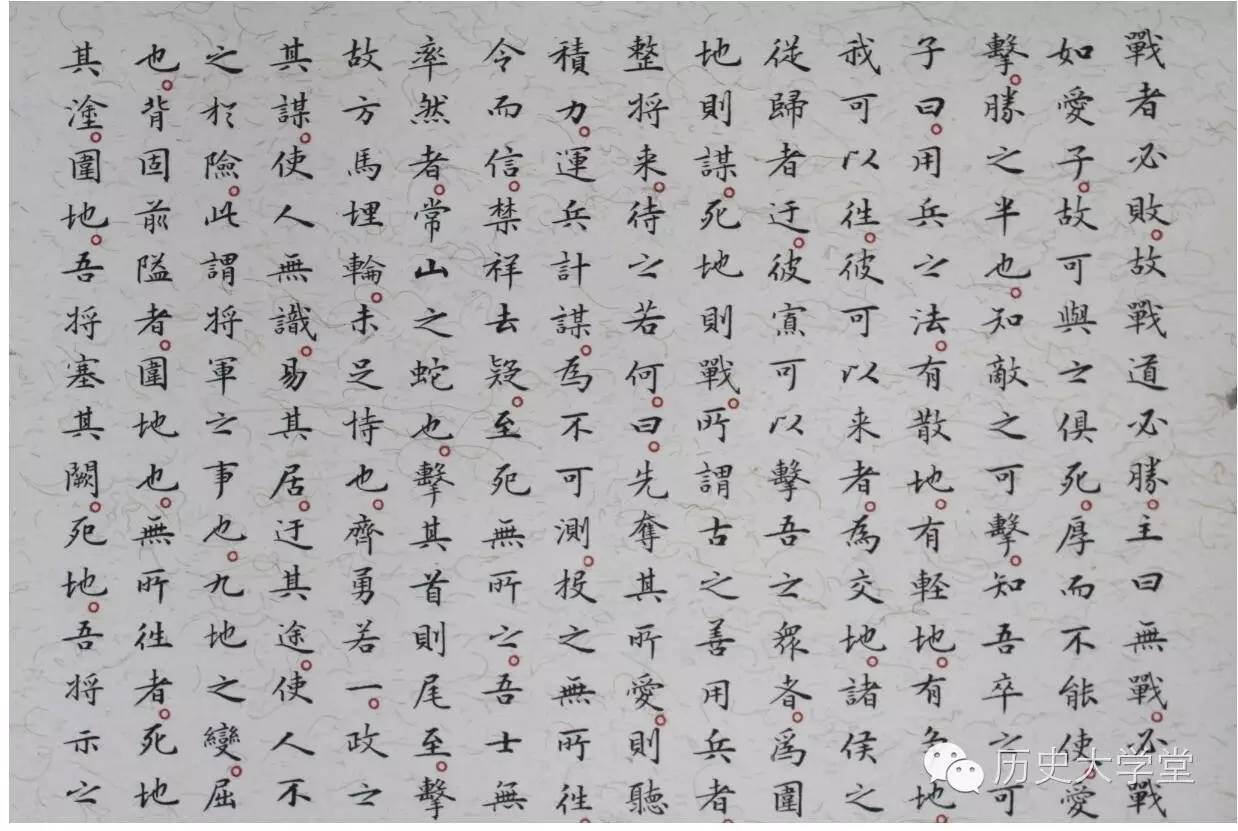 戰者必敗。故戰道必勝。主曰無戰。必戰
如愛子。故可與之俱死。厚而不能使。愛
擊。勝之半也。知敵之可擊。知吾卒之可
子曰。用兵之法。有散地。有輕地。有爭地。
我可以往。彼可以来者。為交地。諸侯之
從歸者迂。彼寡可以擊吾之眾者。為圍
地則謀。死地則戰。所謂古之善用兵者。
整将来。待之若何。曰。先奪其所愛。則聽
積力。運兵計謀。為不可測。投之無所往。
令而信。禁祥去疑。至死無所之。吾士無
率然者。常山之蛇也。擊其首則尾至。擊
故方馬埋輪。未足恃也。齊勇若一。政之
其謀。使人無識。易其居。迂其途。使人不
之於險。此謂将軍之事也。九地之變。屈
也。背固前隘者。圍地也。無所往者。死地
其塗。圍地。吾将塞其闕。死地。吾将示之
历史大学堂